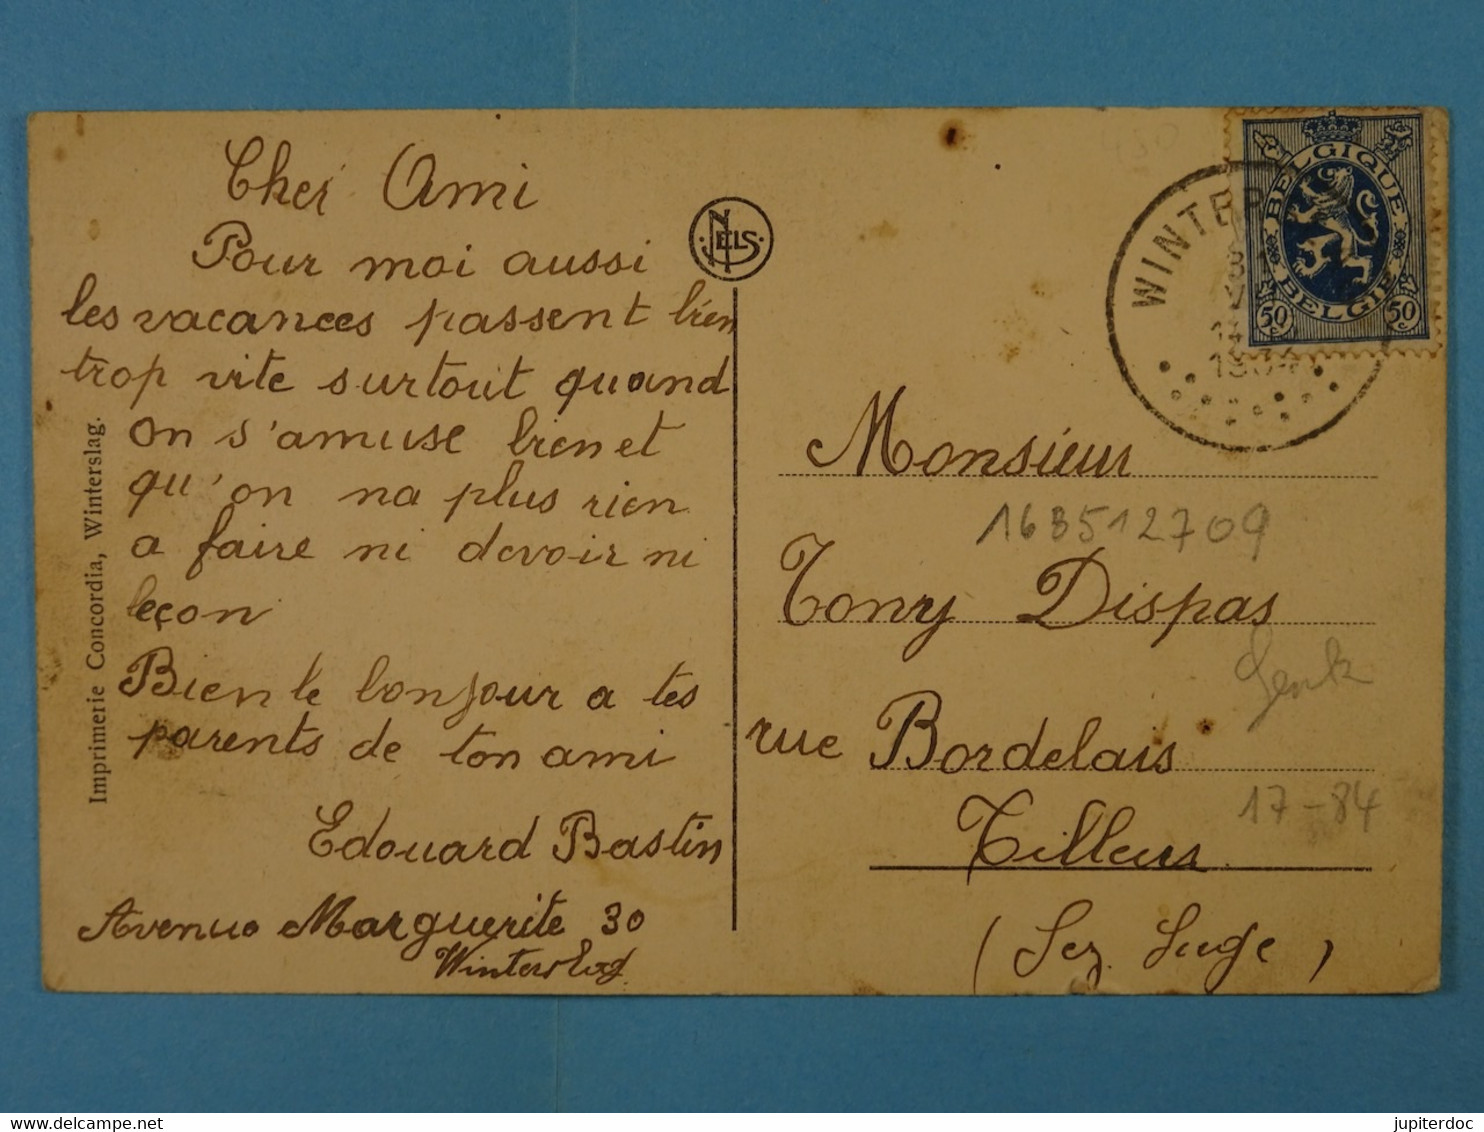 Cher Ami
Pour moi aussi
les vacances passent bien
trop vite surtout quand
on s'amuse bien et
qu'on na plus rien
a faire ni devoir ni
leçon
Bien le bonjour a tes
parents de ton ami
Edouard Bastin
Avenue Marguerite 30
Winterslag
Imprimerie Concordia, Winterslag.
NELS
BELGIQUE
BELGIE
50 50
WINTER
1934
Monsieur
163512709
Tony Dispas
Genk
rue Bordelais
17-84
Tilleur
(Lez Liège)
jupiterdoc